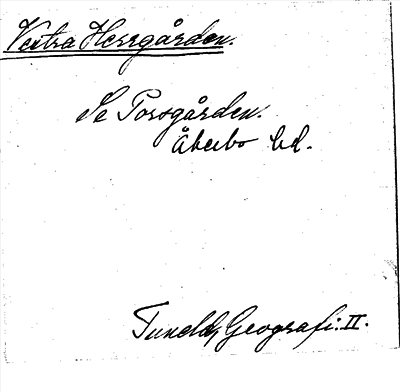 Vestra Herrgården.
Se Porsgården.
Åkerbo hd.
Tunelds Geografi. II.